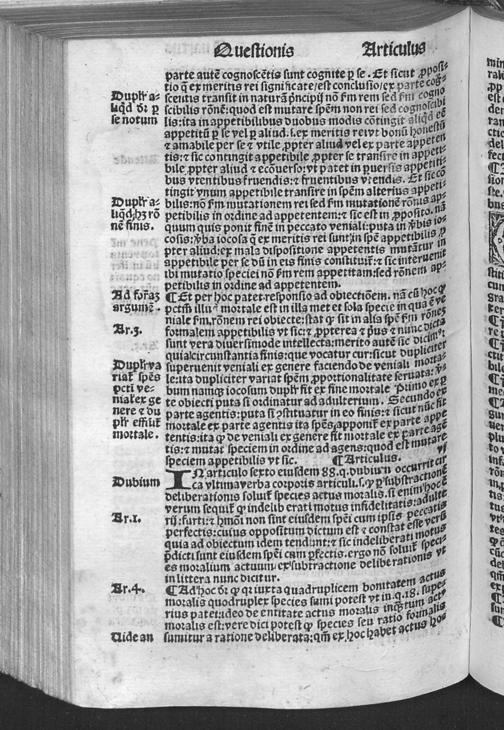 Questionis Articulus
parte autē cognoscētis sunt cognite ꝑ se. Et sicut ꝓposi-
tio q̄ ex meritis rei significate/est conclusio/ex parte cog-
scentis transit in naturā pncipij nō fm rem sed fm cogno
Duplr̄ a-
liqd dr̄ ꝑ
se notum
scibilis rōnē: quod est mutare spēm non rei sed cognoscibi
lis: ita in appetibilibus duobus modis cōtingit aliqd eē
appetitū ꝑ se vel ꝑ aliud. i. ex meritis rei vt bonū honestū
⁊ amabile per se ⁊ vtile, ꝓpter aliud vel ex parte appeten
tis: ⁊ sic contingit appetibile ꝓpter se transire in appeti-
bile ꝓpter aliud ⁊ ecōuerso: vt patet in ꝑuersis appeti-
bus vtentibus fruendis: ⁊ fruentibus vtendis. Et sic cō
tingit vnum appetibile transire in spēm alterius appeti-
Duplr̄ a-
liqd hꝫ rō
nē finis.
bilis: nō fm mutationem rei sed fm mutationē rōnis ap-
petibilis in ordine ad appetentem: ⁊ sic est in ꝓposito. nā
quum quis ponit finē in peccato veniali: puta in v̄bis io-
cosis: v̄ba iocosa q̄ ex meritis rei sunt in spē appetibilis ꝓ
pter aliud: ex mala dispositione appetentis mutātur in
appetibile per se dū in eis finis constituit̄: ⁊ sic interuenit
ibi mutatio speciei nō fm rem appetitam: sed rōnem ap-
petibilis in ordine ad appetentem.
Ad formā
argumē.
¶ Et per hoc patet responsio ad obiectiōem. nā cū hoc ꝙ
pctm illud mortale est in illa met et sola specie in qua ē ve
niale fm, rōnem rei obiecte: stat ꝙ sit in alia spē fm rōnē
Ar. 3.
formalem appetibilis vt sic: ⁊ ꝓpterea ⁊ pus ⁊ nunc dicta
sunt vera diuersimode intellecta: merito autē sic dicim̄:
quia circunstantia finis: que vocatur cur: sicut dupliciter
superuenit veniali ex genere faciendo de veniali morta-
Duplr̄ va
riat̄ spēs
pcti ve-
nialꝭ ex ge
nere ⁊ du
plr̄ efficit̄
mortale.
le: ita dupliciter variat spēm ꝓportionalitate seruata: v̄-
bum namqꝫ iocosum duplr̄ fit ex fine mortale. Primo ex ꝑ
te obiecti puta si ordinatur ad adulterium. Secundo ex
parte agentis: puta si ꝯstituatur in eo finis: ⁊ sicut nūc fit
mortale ex parte agentis ita spēs apponit̄ ex parte appe
tentis: ita ꝙ de veniali ex genere fit mortale ex parte agē
tis: ⁊ mutat speciem in ordine ad agens: quod est mutare
speciem appetibilis vt sic. ¶ Articulus. vj
Dubium
IN articulo sexto eiusdem 88. q. dubium occurrit cir
ca vltima verba corporis articuli. s. ꝙ ꝑ subtractionē
deliberationis soluit̄ species actus moralis. si enim hoc ē
verum sequit̄ ꝙ indeliberati motus infidelitatis: adulte
Ar. 1.
rij: furti: ⁊ hmōi non sint eiusdem spēi cum ipsis peccatis
perfectis: cuius oppositum dictum est ⁊ constat esse verū
quia ad obiectum idem tendunt: ⁊ sic indeliberati motus
p̄dicti sunt eiusdem spēi cum ꝑfectis. ergo nō soluit̄ speci-
es moralium actuum ex subtractione deliberationis vt
in littera nunc dicitur.
Ar. 4.
¶ Ad hoc dr̄ ꝙ qꝛ iuxta quadruplicem bonitatem actus
moralis quadruplex species sumi potest vt in. q. 18. supe-
rius patet: ideo de entitate actus moralis inqtum actus
moralis est: vere dici potest ꝙ species seu ratio formalis
Uide an
sumitur a ratione deliberata: qm̄ ex hoc habet actus ho-